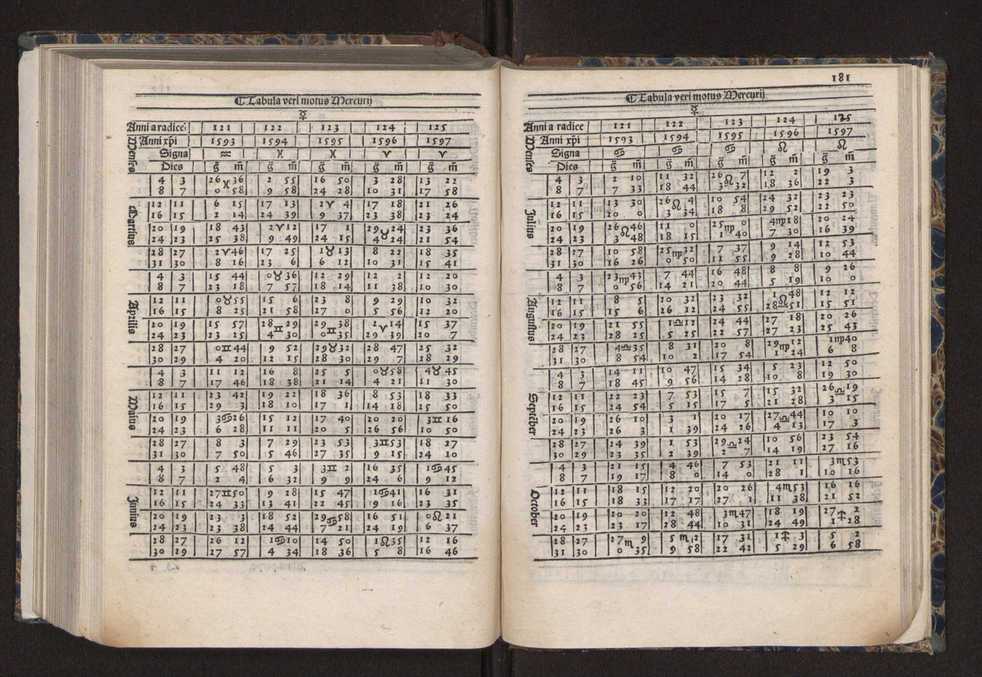 Tabula veri motus Mercurij
☿
Anni a radice 121 122 123 124 125
Anni xp̄i 1593 1594 1595 1596 1597
Menses Signa ♒ ♓ ♓ ♈ ♈
Dies g̃ m̃ g̃ m̃ g̃ m̃ g̃ m̃ g̃ m̃
Martius
4 3 26♓36 2 55 16 50 3 28 13 22
8 7 0 58 9 58 24 28 10 31 17 58
12 11 6 15 17 13 2♈ 4 17 18 21 26
16 15 2 14 24 39 9 37 23 38 23 24
20 19 18 43 2♈12 17 1 29♉24 23 36
24 23 25 38 9 49 24 15 4 24 21 54
28 27 2♈46 17 25 1♉13 8 22 18 35
31 30 8 16 23 6 6 12 10 31 15 41
Aprilis
4 3 15 44 0♉36 12 29 12 2 12 20
8 7 23 18 7 57 18 14 11 38 10 30
12 11 0♉55 15 6 23 8 9 29 10 32
16 15 8 25 21 58 27 0 5 56 12 20
20 19 15 57 28♊29 29♊38 2♈14 15 37
24 23 23 25 4 30 0 4 29 39 20 7
28 27 0♊44 9 52 29♉32 28 47 25 32
30 29 4 20 12 15 28 30 29 7 18 29
Maius
4 3 11 12 16 8 25 5 0♉58 4♉45
8 7 17 46 18 38 21 14 4 21 11 30
12 11 23 42 19 22 18 36 8 53 18 33
16 15 29 3 18 10 17 1 14 18 25 50
20 19 3♋26 15 12 17 40 20 20 3♊16
24 23 6 28 11 11 20 5 26 56 10 50
28 27 8 3 7 29 23 53 3♊53 18 27
31 30 7 50 5 46 27 35 9 15 24 10
Junius
4 3 5 48 5 3 3♊ 2 16 35 1♋45
8 7 2 4 6 32 9 9 24 6 9 12
12 11 27♊50 9 28 15 47 1♋41 16 31
16 15 24 33 13 41 22 45 9 16 23 35
20 19 23 3 18 52 29♋58 16 51 0♌21
24 23 23 38 24 44 7 21 24 19 6 37
28 27 26 12 1♋10 14 50 1♌35 12 16
30 29 27 57 4 34 18 36 5 8 16 46
181
Tabula veri motus Mercurij
☿
Anni a radice 121 122 123 124 125
Anni xp̄i 1593 1594 1595 1596 1597
Menses Signa ♋ ♋ ♋ ♌ ♌
Dies g̃ m̃ g̃ m̃ g̃ m̃ g̃ m̃ g̃ m̃
Julius
4 3 2 10 11 32 26♌ 7 12 2 19 3
8 7 7 33 18 44 3 32 18 36 22 3
12 11 13 30 26♌ 4 10 54 24 32 23 23
16 15 20 0 3 34 18 8 29 52 22 50
20 19 26♌46 11 0 25♍ 0 4♍18 20 24
24 23 3 48 18 15 1 40 7 30 16 39
28 27 10 58 25♍32 7 37 9 14 12 53
31 30 16 26 0 50 11 55 9 28 10 44
Augustus
4 3 23♍43 7 44 16 48 8 8 9 26
8 7 0 56 14 21 20 44 5 19 10 30
12 11 8 5 20 32 23 32 1♌48 12 12
16 15 15 6 26 12 24 55 28 51 15 51
20 19 21 55 1♎12 24 44 27 18 20 26
24 23 28 25 5 25 22 57 27 23 25 43
28 27 4♎35 8 31 20 8 29♍12 1♍40
31 30 8 54 10 2 17 54 1 24 6 8
Septēber
4 3 14 11 10 47 15 34 5 23 12 50
8 7 18 45 9 56 14 28 10 8 19 30
12 11 22 23 7 53 15 7 15 32 26♎19
16 15 24 54 5 15 17 5 21 28 3 15
20 19 26 10 3 1 20 17 27♎44 10 10
24 23 26 3 1 39 24 26 4 13 17 3
28 27 24 39 1 53 29♎24 10 56 23 54
30 29 23 35 2 39 2 7 14 19 27 16
October
4 3 21 15 4 46 7 53 21 11 3♏53
8 7 19 17 8 0 14 0 28 1 10 16
12 11 18 15 12 20 20 26 4♏53 16 16
16 15 18 33 17 17 27 1 11 38 21 52
20 19 20 20 12 48 3♏47 18 19 27♐ 2
24 23 23 17 28 44 10 31 24 49 1 28
28 27 27♏ 9 5♏ 2 17 31 1♐ 3 5 2
31 30 0 35 9 58 22 42 5 29 6 58